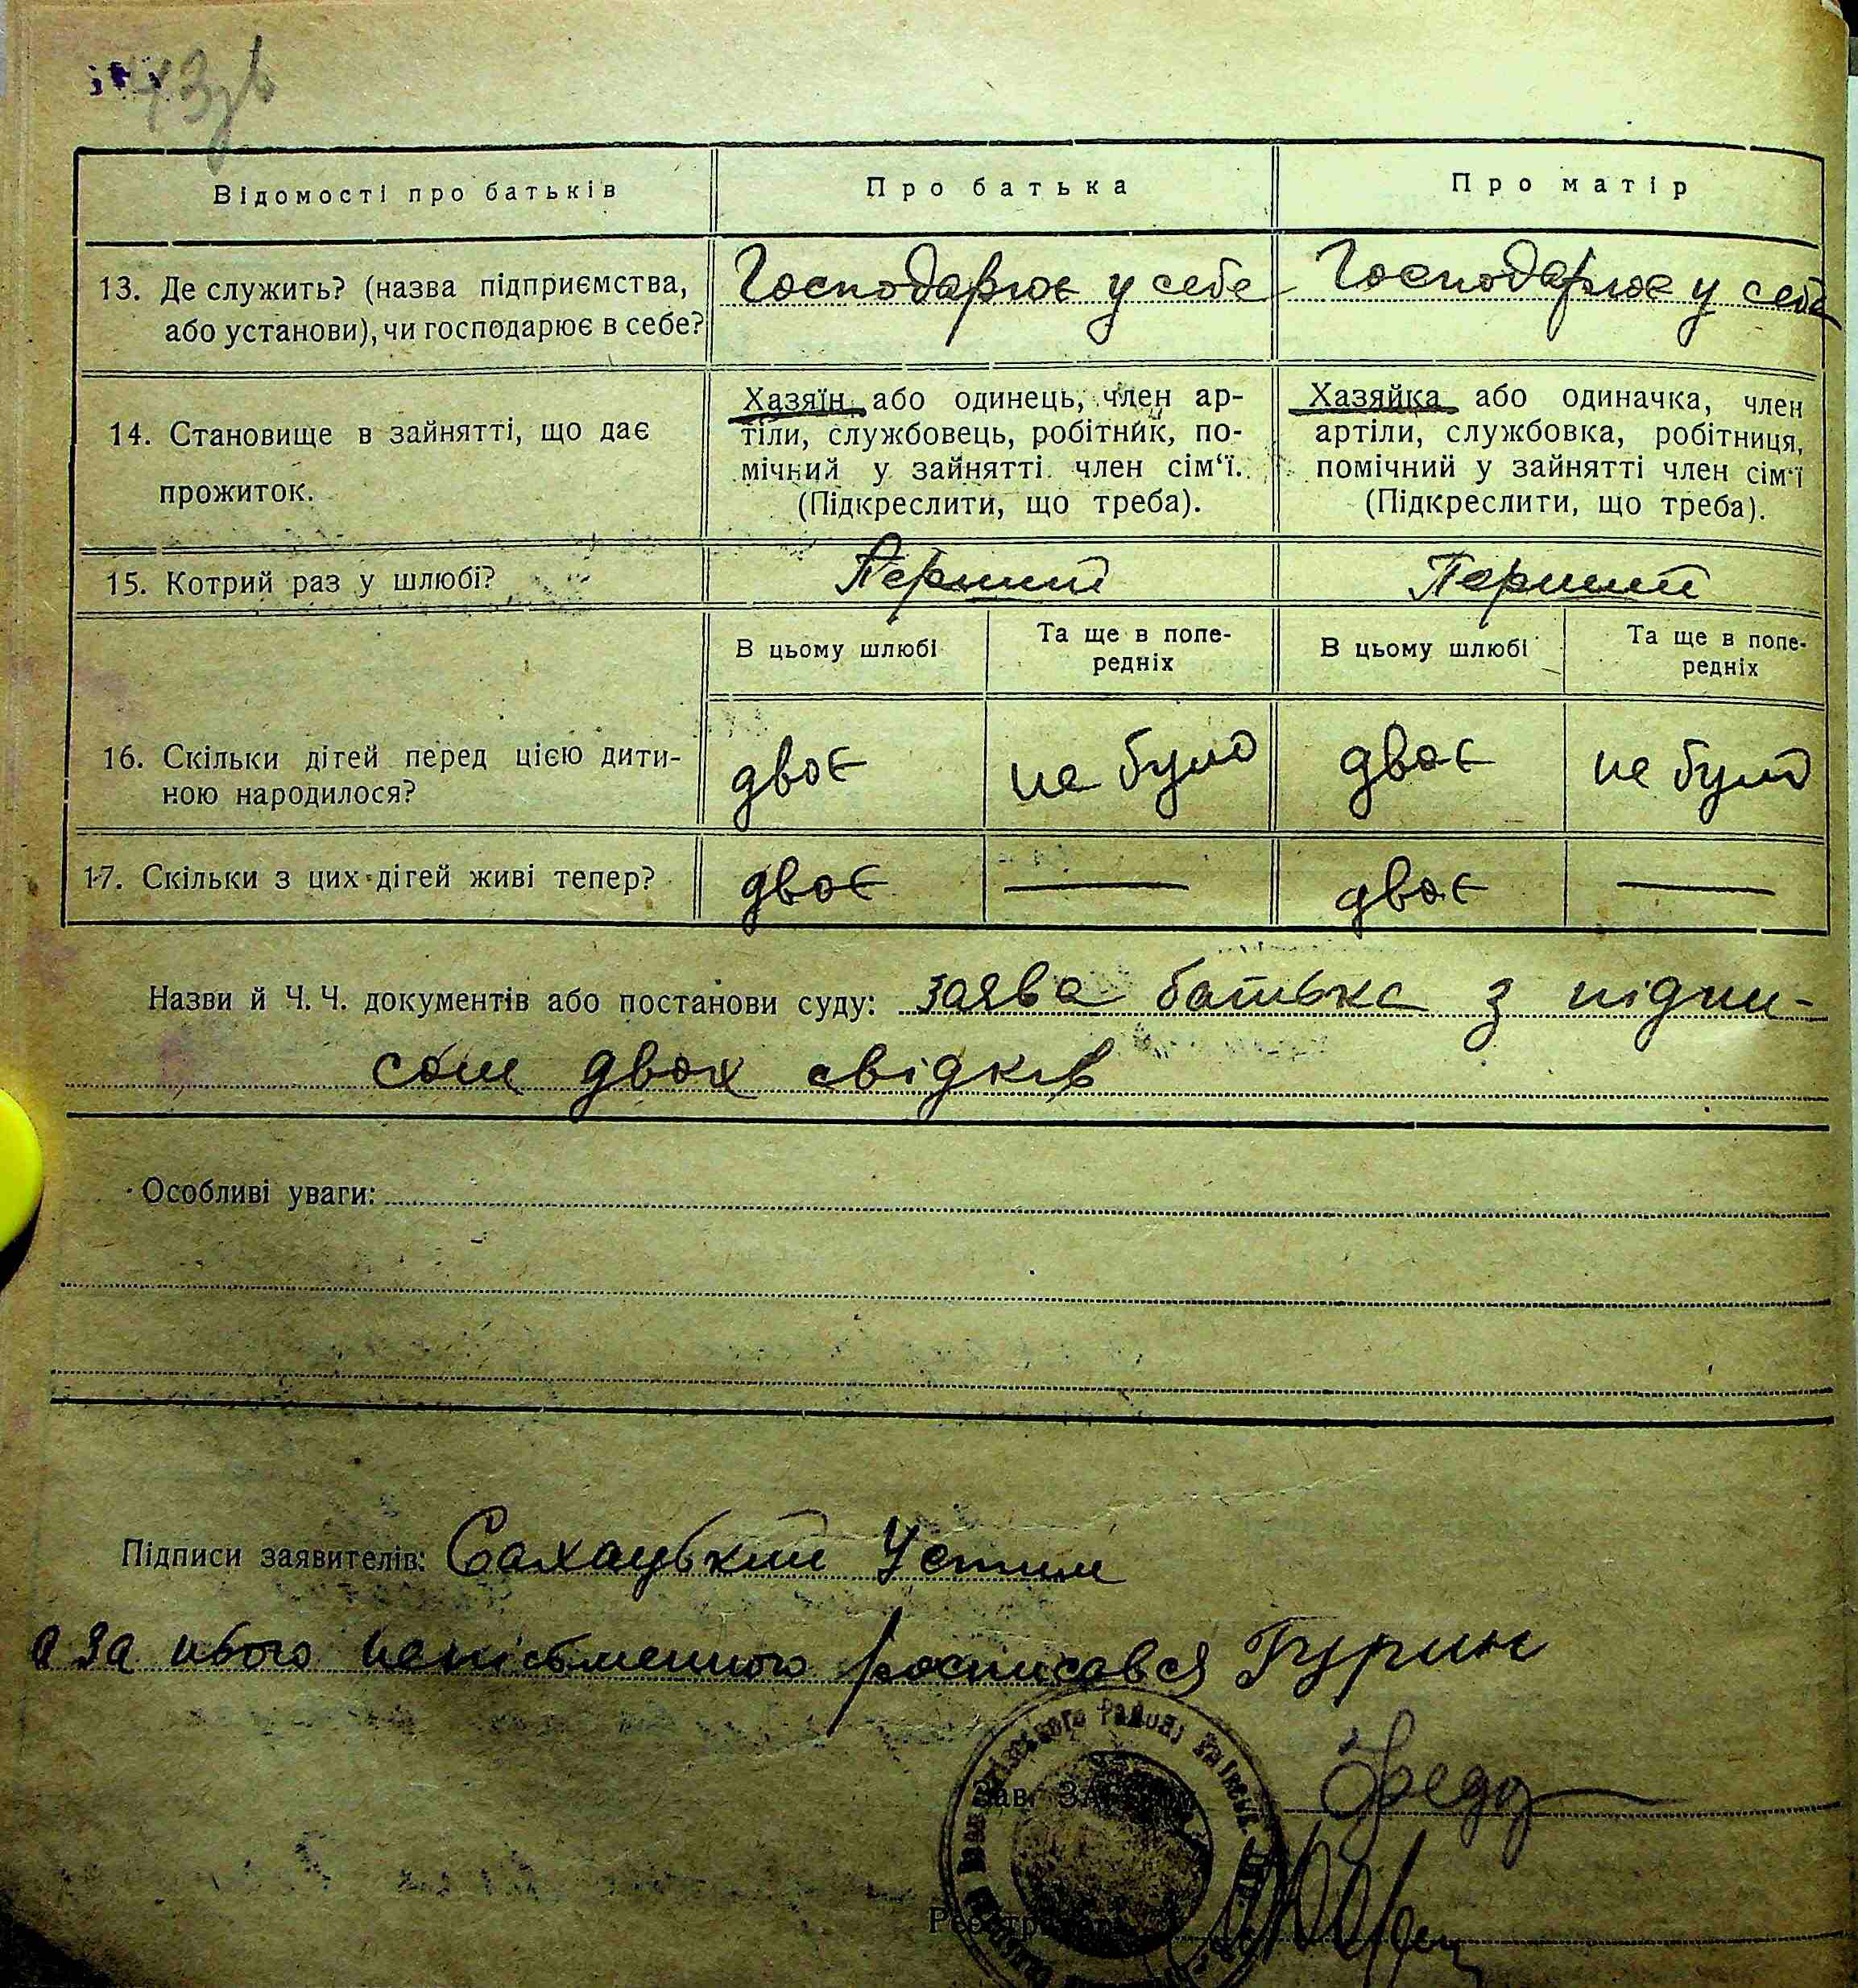 43зв
Відомості про батьків
Про батька
Про матір
13. Де служить? (назва підприємства,
або установи), чи господарює в себе?
Господарює у себе
Господарює у себе
14. Становище в зайнятті, що дає
прожиток.
Хазяїн або одинець, член ар-
тіли, службовець, робітник, по-
мічний у зайнятті член сім'ї.
(Підкреслити, що треба).
Хазяйка або одиначка, член
артіли, службовка, робітниця,
помічний у зайнятті член сім'ї
(Підкреслити, що треба).
15. Котрий раз у шлюбі?
Перший
Перший
В цьому шлюбі
Та ще в попе-
редніх
В цьому шлюбі
Та ще в попе-
редніх
16. Скільки дітей перед цією дити-
ною народилося?
двоє
не було
двоє
не було
17. Скільки з цих дітей живі тепер?
двоє
—
двоє
—
Назви й Ч. Ч. документів або постанови суду: заява батька з підпи-
сом двох свідків
Особливі уваги:
Підписи заявителів: Сахацький Устим
а за нього неписьменного росписався Гурин
Зав. ЗА